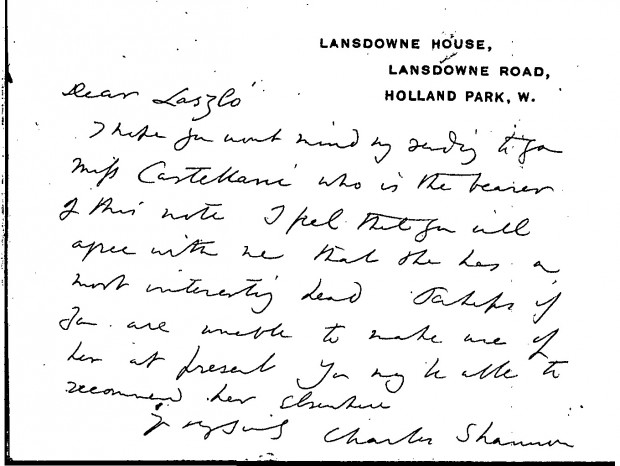 LANSDOWNE HOUSE,
LANSDOWNE ROAD,
HOLLAND PARK, W.
Dear László
I hope you wont mind my sending to you
Miss Castellani who is the bearer
of this note I feel that you will
agree with me that she has a
most interesting head Perhaps if
you are unable to make use of
her at present you may be able to
recommend her elsewhere
Charles Shannon